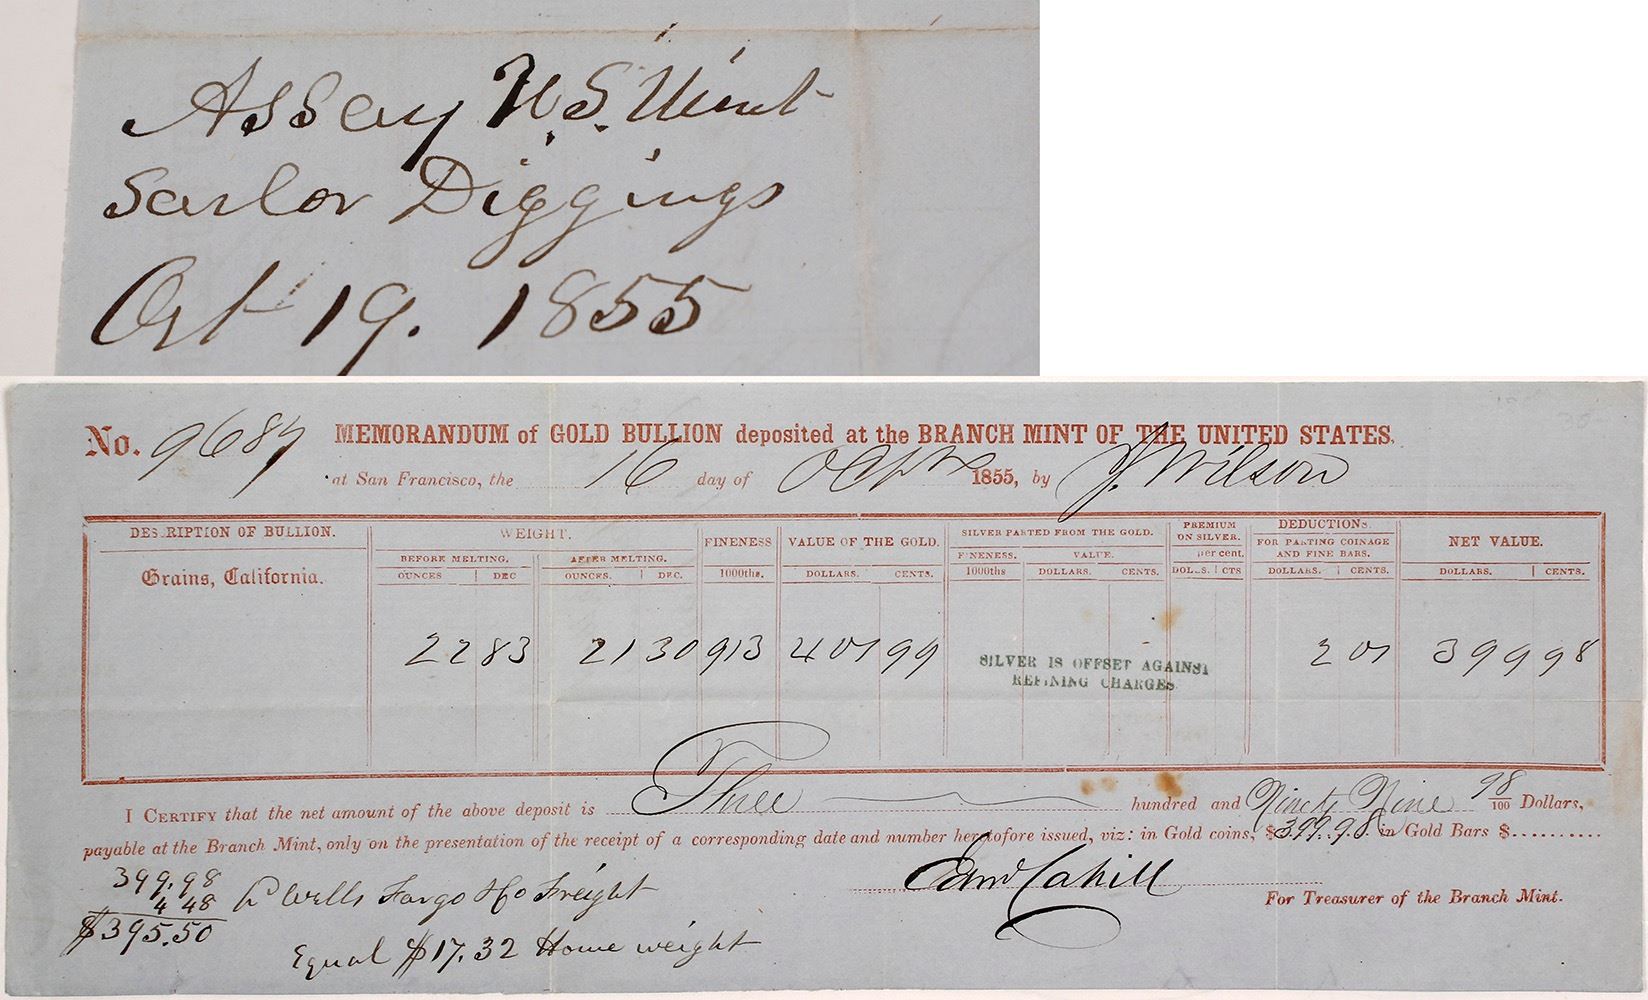 Assay U.S. Mint
Sailor Diggings
Oct 19. 1855
No. 9687 MEMORANDUM of GOLD BULLION deposited at the BRANCH MINT OF THE UNITED STATES.
at San Francisco, the 16 day of Octbre 1855, by J. Wilson
DESCRIPTION OF BULLION. WEIGHT. FINENESS VALUE OF THE GOLD. SILVER PARTED FROM THE GOLD. PREMIUM ON SILVER. DEDUCTIONS. NET VALUE.
BEFORE MELTING. AFTER MELTING. FINENESS. VALUE. per cent. FOR PARTING COINAGE AND FINE BARS.
OUNCES DEC OUNCES. DEC. 1000ths. DOLLARS. CENTS. 1000ths DOLLARS. CENTS. DOLLS. CTS DOLLARS. CENTS. DOLLARS. CENTS.
Grains, California.
22 83 21 30 913 401 99 2 01 399 98
SILVER IS OFFSET AGAINST
REFINING CHARGES
I CERTIFY that the net amount of the above deposit is Three hundred and Ninety Nine 98/100 Dollars,
payable at the Branch Mint, only on the presentation of the receipt of a corresponding date and number heretofore issued, viz: in Gold coins, $399.98 in Gold Bars $..........
Edwd Cahill
For Treasurer of the Branch Mint.
399.98
4 48 Wells Fargo & Co Freight
$395.50
Equal $17.32 Home weight